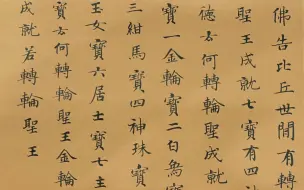 佛告比丘世間有轉
聖王成就七寶有四
德云何轉輪聖成就
寶一金輪寶二白象寶
三紺馬寶四神珠寶
玉女寶六居士寶七主
寶云何轉輪聖王金輪
成就若轉輪聖王